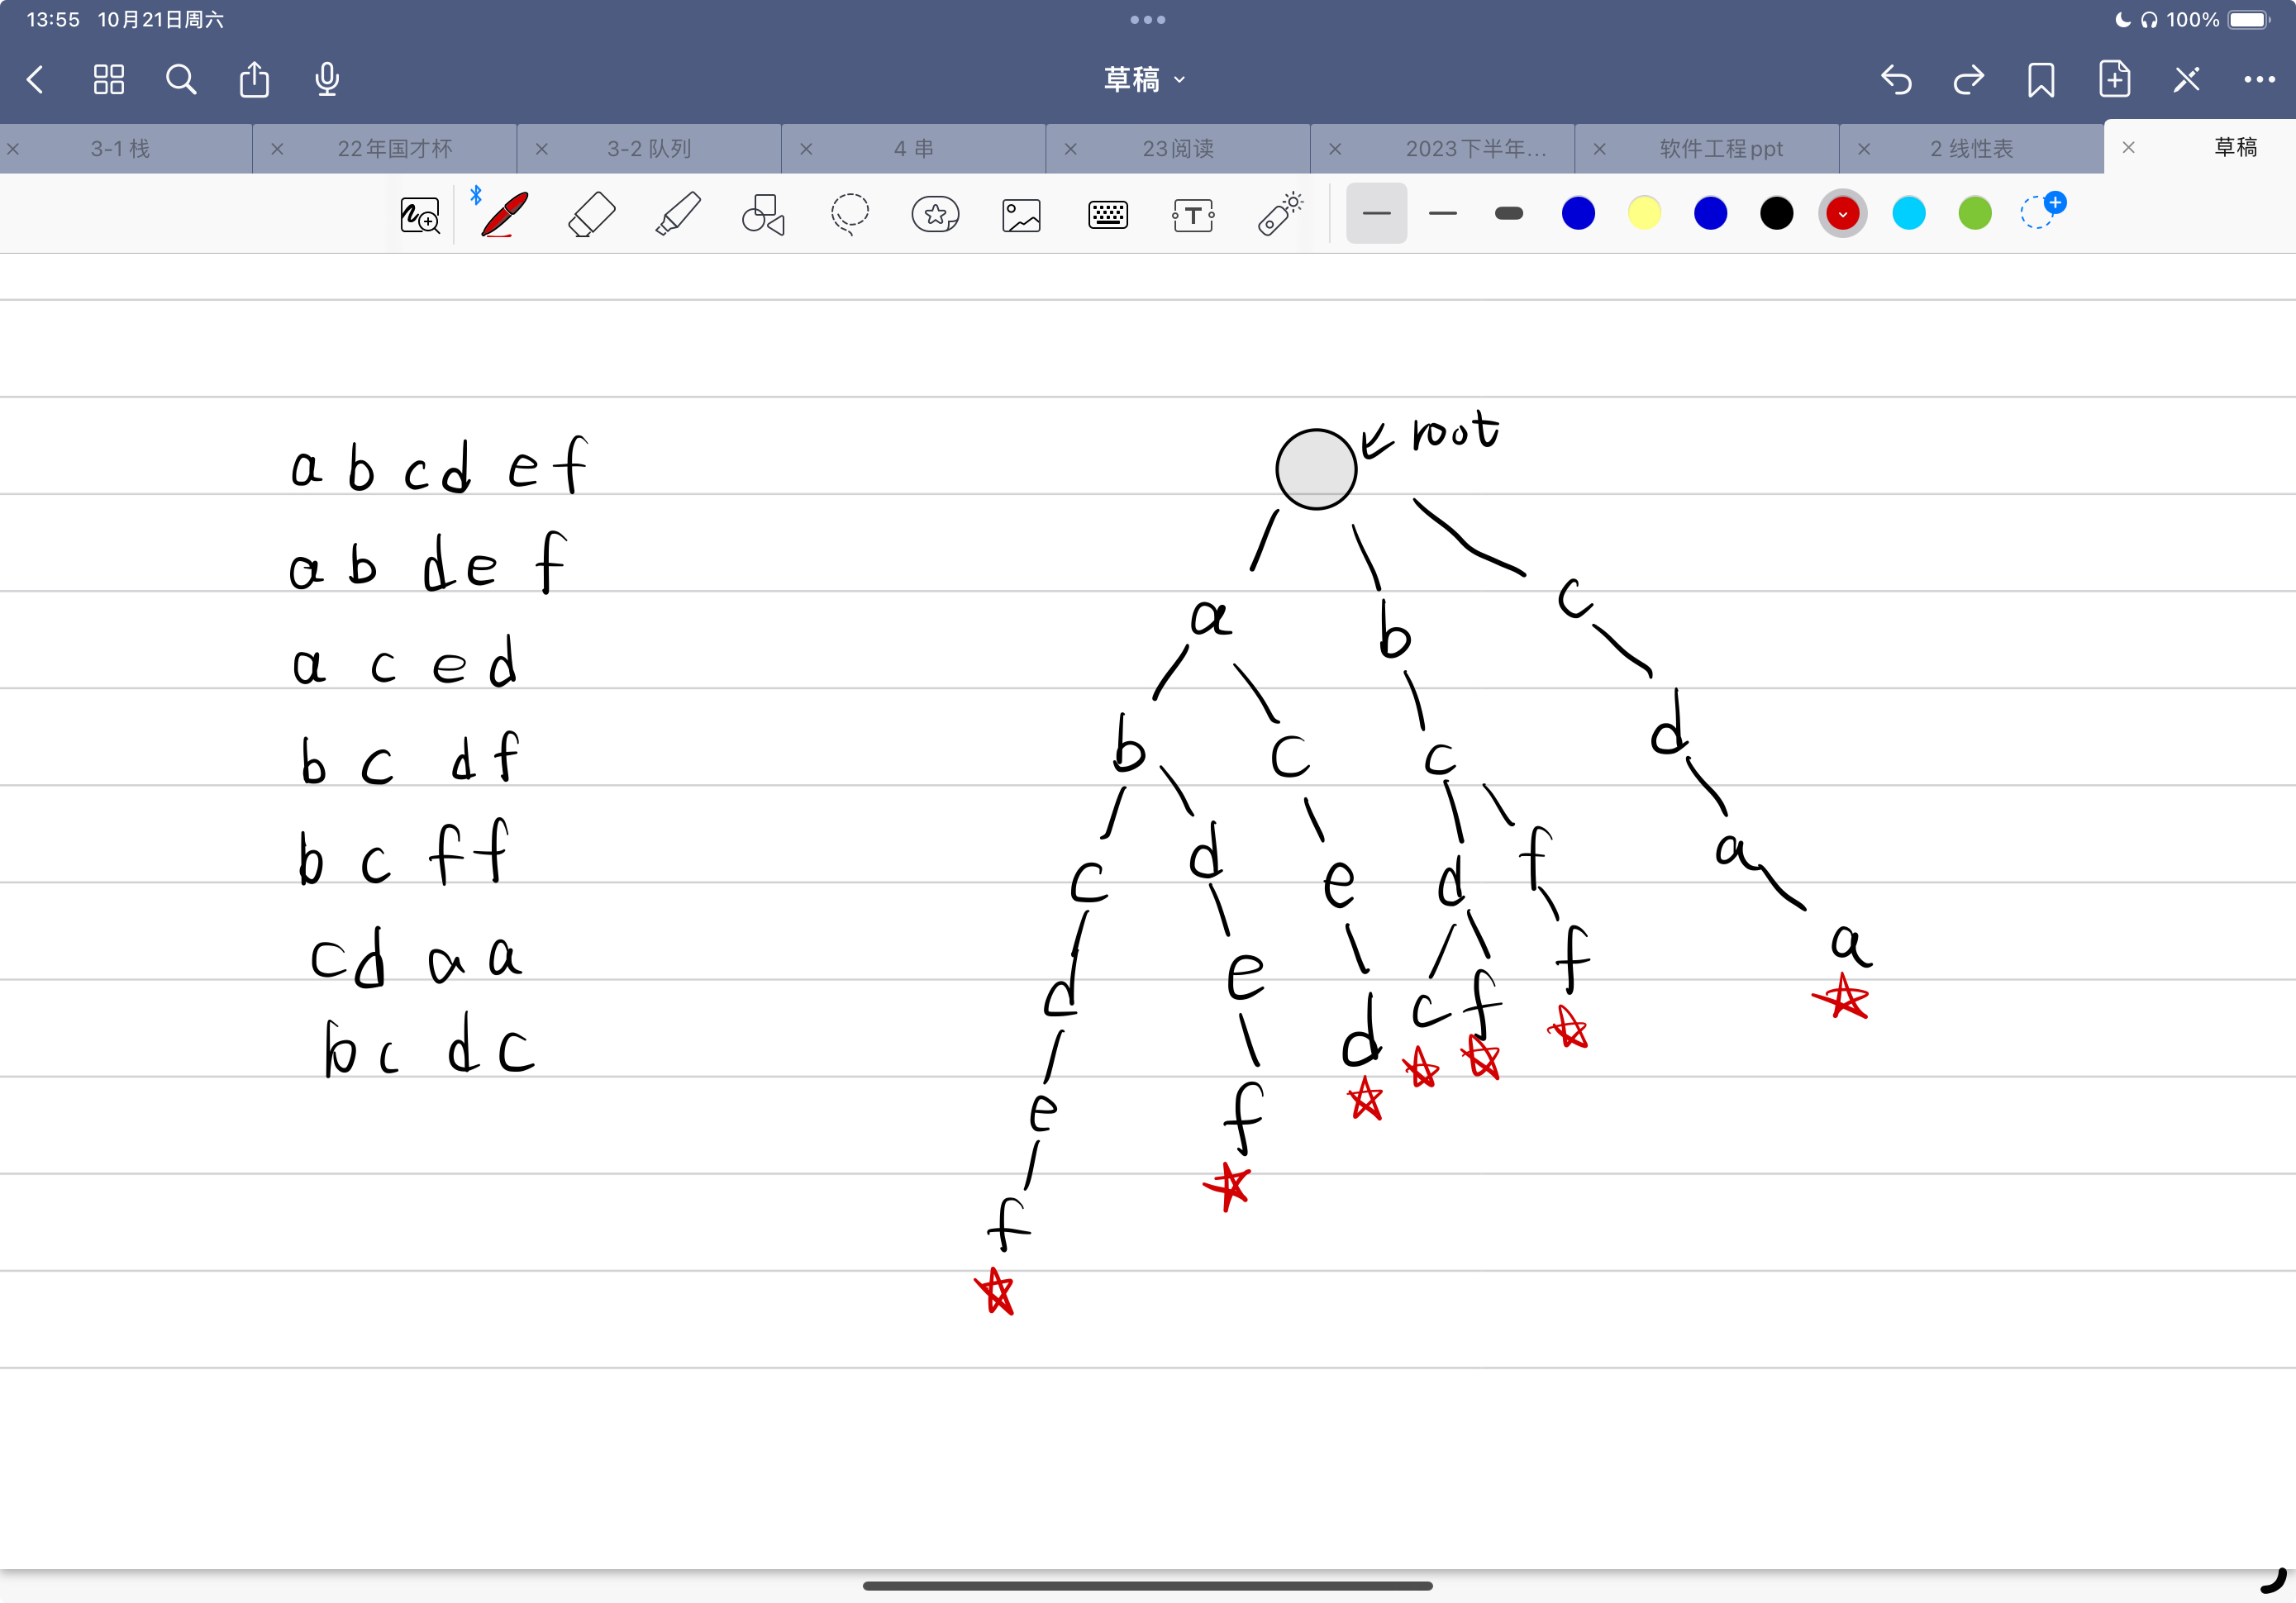 13:55 10月21日周六
100%
草稿
3-1 栈
22年国才杯
3-2 队列
4 串
23阅读
2023下半年...
软件工程ppt
2 线性表
草稿
T
root
a b c d e f
a b d e f
a c e d
b c d f
b c f f
c d a a
b c d c
a b c
b c c d
c d e d f a
d e d c f f a
e f
f